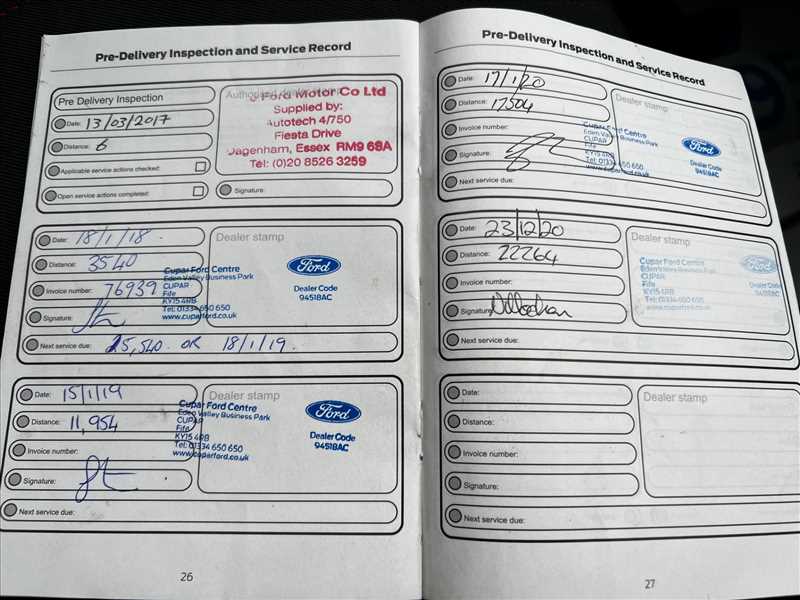 Pre-Delivery Inspection and Service Record
Pre Delivery Inspection
Date: 13/03/2017
Distance: 6
Applicable service actions checked:
Open service actions completed:
Ford Motor Co Ltd
Supplied by:
Autotech 4/750
Fiesta Drive
Dagenham, Essex RM9 6SA
Tel: (0)20 8526 3259
Signature:
Date: 18/1/18.
Distance: 3540
Invoice number: 76939
Signature:
Next service due: 25,540 OR 18/1/19.
Dealer stamp
Cupar Ford Centre
Eden Valley Business Park
CUPAR
Fife
KY15 4RB
Tel: 01334 650 650
www.cuparford.co.uk
Ford
Dealer Code
94518AC
Date: 15/1/19
Distance: 11,954
Invoice number:
Signature:
Next service due:
Dealer stamp
Cupar Ford Centre
Eden Valley Business Park
CUPAR
Fife
KY15 4RB
Tel: 01334 650 650
www.cuparford.co.uk
Ford
Dealer Code
94518AC
26
Pre-Delivery Inspection and Service Record
Date: 17/1/20
Distance: 17504
Invoice number:
Signature:
Next service due:
Dealer stamp
Cupar Ford Centre
Eden Valley Business Park
CUPAR
Fife
KY15 4RB
Tel: 01334 650 650
www.cuparford.co.uk
Ford
Dealer Code
94518AC
Date: 23/12/20
Distance: 22264
Invoice number:
Signature:
Next service due:
Dealer stamp
Cupar Ford Centre
Eden Valley Business Park
CUPAR
Fife
KY15 4RB
Tel: 01334 650 650
www.cuparford.co.uk
Ford
Dealer Code
94518AC
Date:
Distance:
Invoice number:
Signature:
Next service due:
Dealer stamp
27